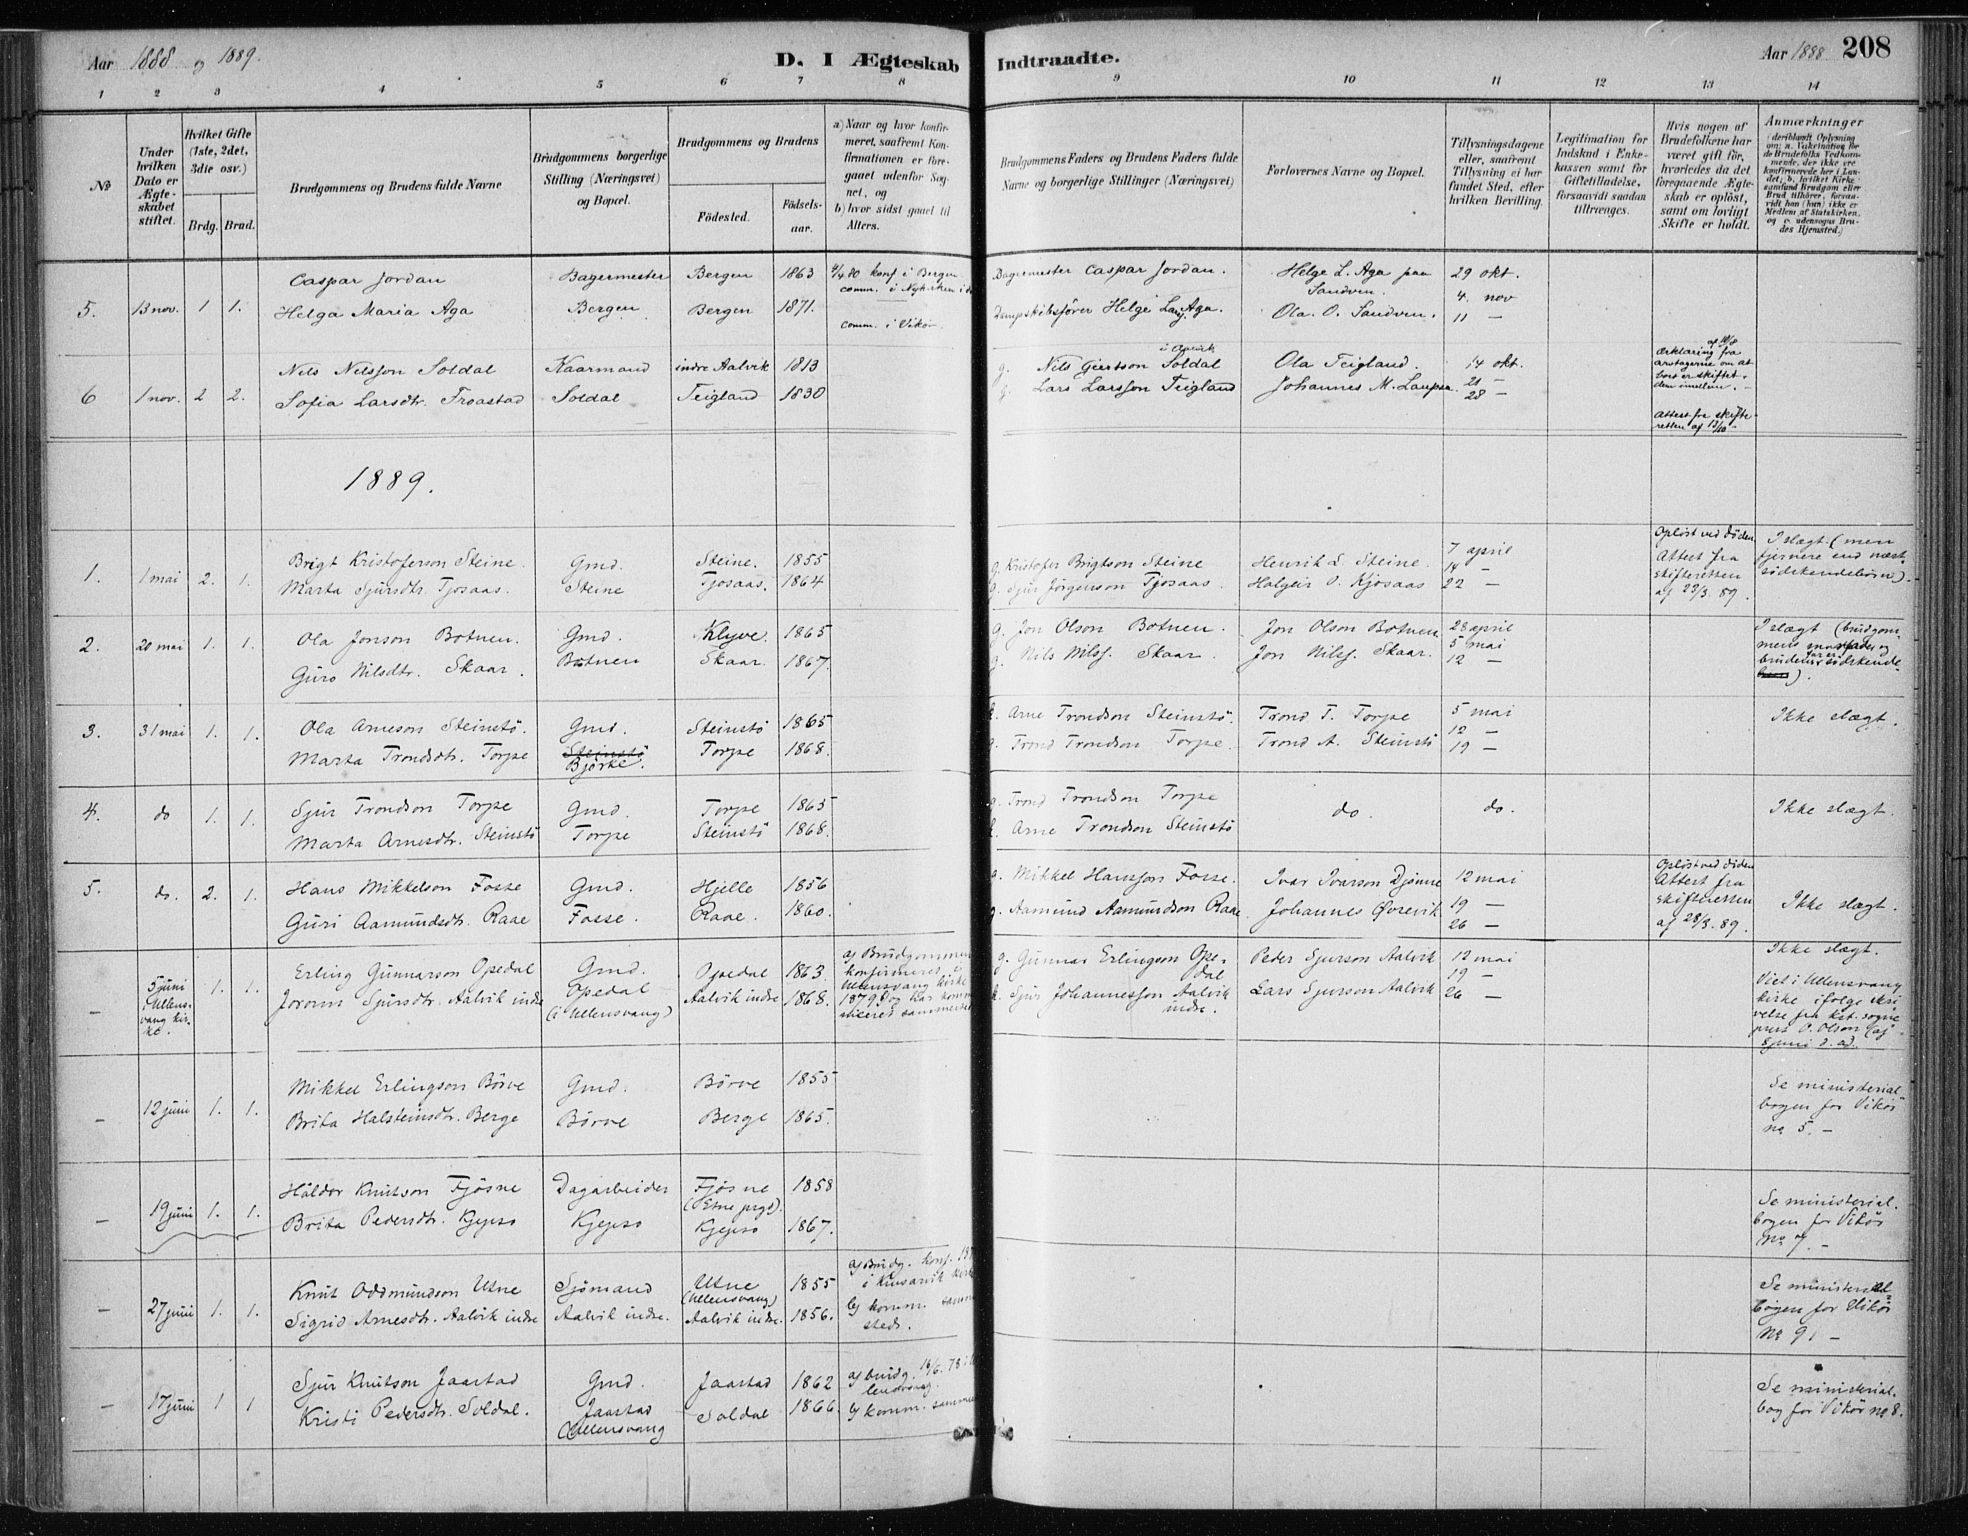 Aar 1888 og 1889.
D. I Ægteskab Indtraadte.
Aar 1888 208
1 2 3 4 5 6 7 8 9 10 11 12 13 14
No
Under hvilken Dato er Ægteskabet stiftet.
Hvilket Gifte (1ste, 2det, 3die osv.)
Brdg. Brud.
Brudgommens og Brudens fulde Navne
Brudgommens borgerlige Stilling (Næringsvei) og Bopæl.
Brudgommens og Brudens
Fødested.
Fødselsaar.
a) Naar og hvor konfirmeret, saafremt Konfirmationen er foregaaet udenfor Sognet, og
b) hvor sidst gaaet til Alters.
Brudgommens Faders og Brudens Faders fulde Navne og borgerlige Stillinger (Næringsvei)
Forlovernes Navne og Bopæl.
Tillysningsdagene eller, saafremt Tillysning ei har fundet Sted, efter hvilken Bevilling.
Legitimation for Indskud i Enkekassen samt for Giftetilladelse, forsaavidt saadan tiltrænges.
Hvis nogen af Brudefolkene har været gift før, hvorledes da det foregaaende Ægteskab er opløst, samt om lovligt Skifte er holdt.
Anmærkninger
(deriblandt Oplysning om: a. Vakcination for de Brudefolks Vedkommende, der ikke ere konfirmerede her i Landet; b. hvilket Kirkesamfund Brudgom eller Brud tilhører, forsaavidt han (hun) ikke er Medlem af Statskirken, og c. udensogns Brudes Hjemsted.)
5. 13 nov. 1 1.
Caspar Jordan Bagermester Bergen 1863 konf i Bergen
comm. i Nykirken
Helga Maria Aga Bergen Bergen 1871.
comm. i Vikør
Bagermester Caspar Jordan. Helge L. Aga paa Sandven. 29 okt.
4. nov
Dampskibsfører Helge Aga. Ola. O. Sandven. 11 —
6 1 nov. 2 2.
Nels Nelsson Soldal Kaarmand indre Aalvik 1813
Sofia Larsdtr. Froastad Soldal Teigland 1830
g. Nils Geertson Soldal Ola Teigland. 14 okt.
g. Lars Larsson Teigland Johannes M. Laupsa. 21 —
28 —
Erklæring fra
arvtagerne om at
boet er skiftet
dem imellem. —
Attest fra skifte-
retten af 13/10 —
1889.
1. 1 mai 2. 1.
Brigt Kristoferson Steine. Gmd. Steine. 1855
Marta Sjursdtr. Tjosaas. Steine Tjosaas. 1864
g. Kristofer Brigtson Steine Henrik L. Steine. 7 april
g. Sjur Jørgenson Tjosaas. Halgeir O. Kjosaas 14 —
22 —
Opløst ved døden
Attest fra
skifteretten
af 23/3. 89.
I slægt (men
fjernere end næst
sødskendebørn).
2. 20 mai 1. 1.
Ola Jonson Botnen. Gmd. Klyve. 1865
Guro Nilsdtr. Skaar. Botnen Skaar. 1867.
g. Jon Olson Botnen. Jon Olson Botnen 28 april
g. Nils Nilss. Skaar. Jon Nilss. Skaar. 5 mai
12 —
I slægt (brudgom-
mens morfader og
brudens farer sødskende
).
3. 31 mai 1. 1.
Ola Arneson Steinstö. Gmd. Steinstö 1865
Marta Trondsdtr. Torpe Steinstö Björke. Torpe 1868.
k. Arne Trondson Steinstö. Trond T. Torpe 5 mai
g. Trond Trondson Torpe. Trond A. Steinstö 12 —
19 —
Ikke slægt.
4. do 1. 1.
Sjur Trondson Torpe Gmd. Torpe 1865
Marta Arnesdtr. Steinstö Torpe Steinstö 1868.
g. Trond Trondson Torpe do. do.
k. Arne Trondson Steinstö
Ikke slægt.
5. do. 2. 1.
Hans Mikkelson Fosse Gmd. Hjelle 1856
Guri Aamundsdtr. Raae Fosse. Raae. 1860.
g. Mikkel Hansson Fosse. Ivar Ivarson Djönne 12 mai
g. Aamund Aamundson Raae. Johannes Øvrevik 19 —
26 —
Opløst ved døden
Attest fra
skifteretten
af 28/3. 89.
Ikke slægt.
— 5 juni Ullensvang kirke. 1. 1.
Erling Gunnarson Opedal Gmd. Opedal 1863.
Joronn Sjursdtr. Aalvik indre Opedal (i Ullensvang) Aalvik indre 1868.
a) Brudgommen
konfirmeret i
Ullensvang kirke
1879 og har kom-
niceret sammesteds
g. Gunnar Erlingson Opedal Peder Sjurson Aalvik 12 mai
19 —
k. Sjur Johannesson Aalvik indre. Lars Sjurson Aalvik 26 —
Ikke slægt.
Viet i Ullensvang
kirke ifølge skri-
velse fra kst. sogne
prest O. Olson (af
8 juni d. a.)
— 12 juni 1. 1.
Mikkel Erlingson Börve Gmd. Börve 1855
Brita Halsteinsdtr. Berge Börve Berge 1865.
Se ministerial
bogen for Vikör
no 5. —
— 19 juni 1. 1.
Haldor Knutson Fjösne Dagarbeider Fjösne (Etne prgd). 1858
Brita Pedersdtr. Kjepso Kjepso Kjepso 1867.
Se ministerial.
bogen for Vikör
No 7. —
— 27 juni 1. 1.
Knut Oddmundson Utne Sjömand Utne (Ullensvang) 1855
Sigrid Arnesdtr. Aalvik indre Aalvik indre. Aalvik indre. 1856.
a) Brudg. konf.
i Kinsarvik kirke
b) komm. samme-
steds.
Se ministerial
bogen for Vikör
No 9. —
— 17 juni 1 1
Sjur Knutson Jaastad Gmd. Jaastad 1862
Kristi Pedersdtr. Soldal. Jaastad (Ullensvang Soldal 1866.
a) brudg. 16/6. 78 i Ul-
lensvang.
b) komm. samme
Se ministerial.
bog for Vikör no 8.